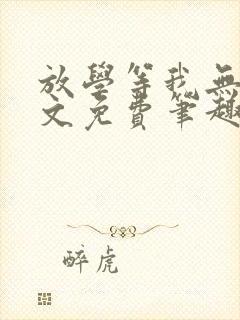 放學等我無
文免費筆趣
醉虎